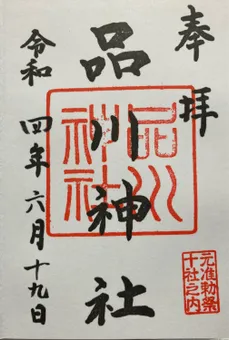 奉拝
品川神社
品川神社
令和四年六月十九日
元准勅祭
十社之内